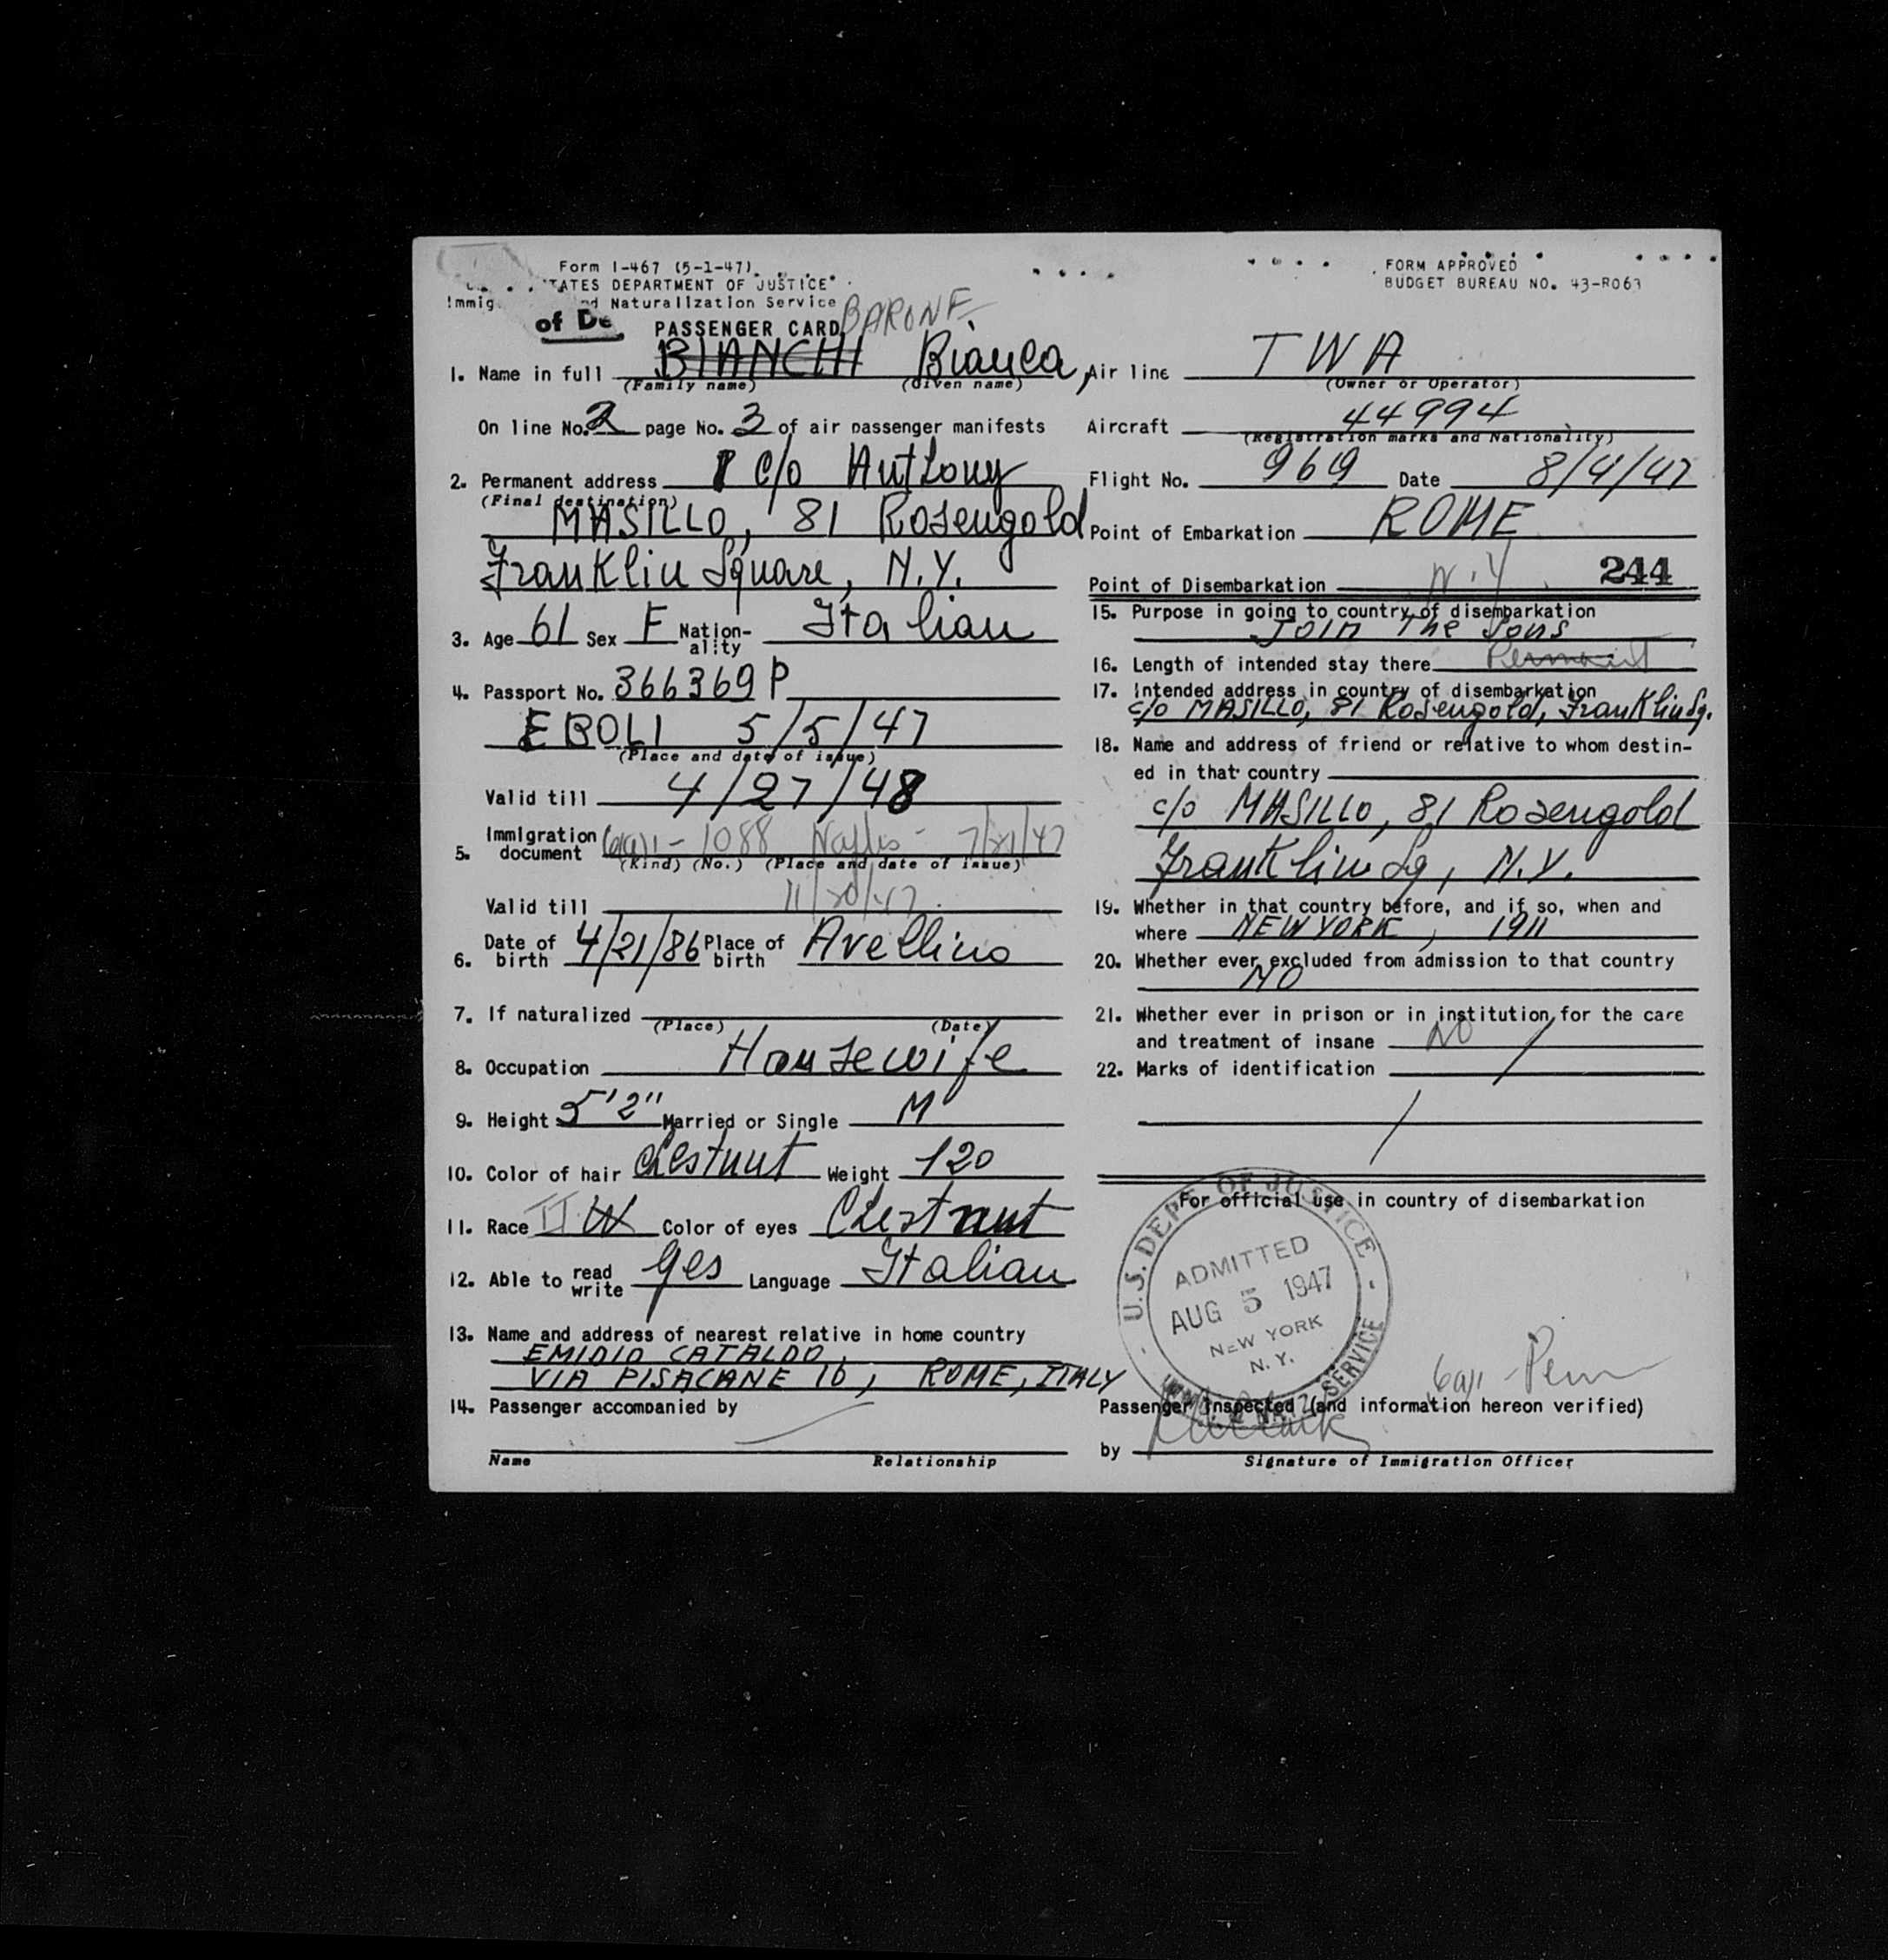 Form I-467 (5-1-47)
TATES DEPARTMENT OF JUSTICE
Immig nd Naturalization Service
of De
PASSENGER CARD BARONE
1. Name in full BIANCHI Bianca,
(Family name) (Given name)
On line No. 2 page No. 3 of air passenger manifests
2. Permanent address c/o Anthony
(Final destination)
MASILLO, 81 Rosengold
Franklin Square, N.Y.
3. Age 61 Sex F Nation-ality Italian
4. Passport No. 366369 P
EBOLI 5/5/47
(Place and date of issue)
Valid till 4/27/48
5. Immigration document 6(a)1 - 1088 Naples - 7/21/47
(Kind) (No.) (Place and date of issue)
Valid till 11/20/47
6. Date of birth 4/21/86 Place of birth Avellino
7. If naturalized
(Place) (Date)
8. Occupation Housewife
9. Height 5'2" Married or Single M
10. Color of hair Chestnut Weight 120
11. Race W Color of eyes Chestnut
12. Able to read write yes Language Italian
13. Name and address of nearest relative in home country
EMIDIO CATALDO,
VIA PISACANE 16, ROME, ITALY
14. Passenger accompanied by
Name Relationship
FORM APPROVED
BUDGET BUREAU NO. 43-R063
Air line TWA
(Owner or Operator)
Aircraft 44994
(Registration marks and Nationality)
Flight No. 969 Date 8/4/47
Point of Embarkation ROME
Point of Disembarkation N.Y. 244
15. Purpose in going to country of disembarkation
JOIN The Sons
16. Length of intended stay there Permanent
17. Intended address in country of disembarkation
c/o MASILLO, 81 Rosengold, Franklin Sq.
18. Name and address of friend or relative to whom destin-
ed in that country
c/o MASILLO, 81 Rosengold
Franklin Sq, N.Y.
19. Whether in that country before, and if so, when and
where NEW YORK, 1911
20. Whether ever excluded from admission to that country
NO
21. Whether ever in prison or in institution for the care
and treatment of insane NO
22. Marks of identification
For official use in country of disembarkation
U.S. DEPT. OF JUSTICE
ADMITTED
AUG 5 1947
NEW YORK
N.Y.
SERVICE
Passenger inspected (and information hereon verified)
by
Signature of Immigration Officer